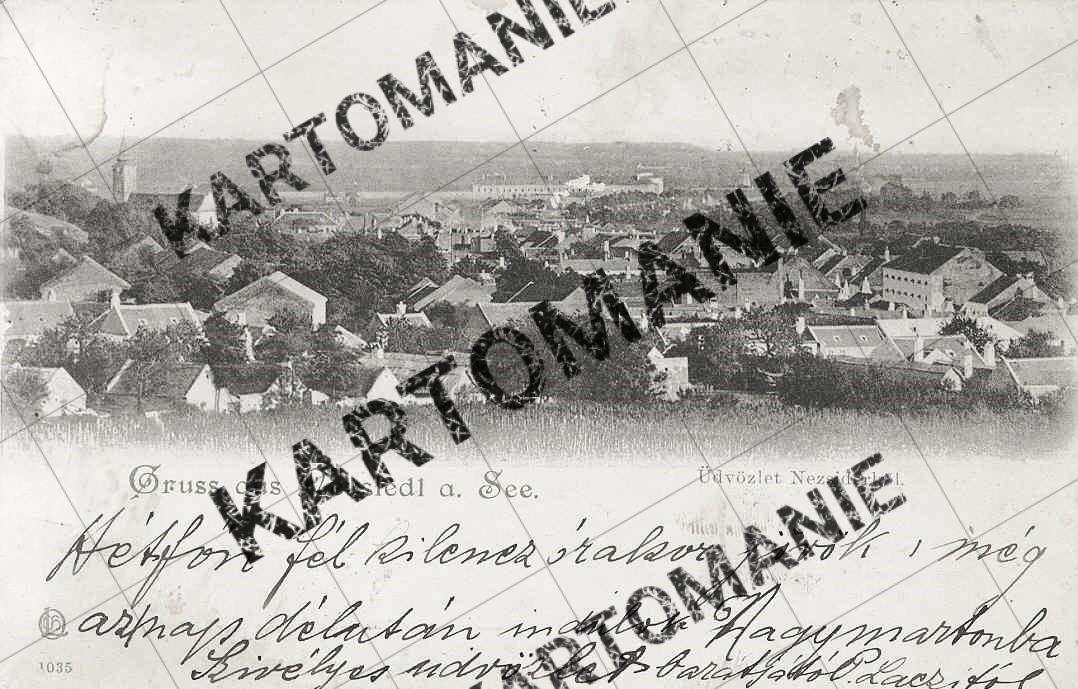 KARTOMANIE
KARTOMANIE
KARTOMANIE
Gruss aus Neusiedl a. See.
Üdvözlet Nezsiderből.
Hétfőn fél kilencz órakor, még
aznap délután indulok Nagymartonba
Szivélyes üdvözlet barátjától P. Laczitól
1035